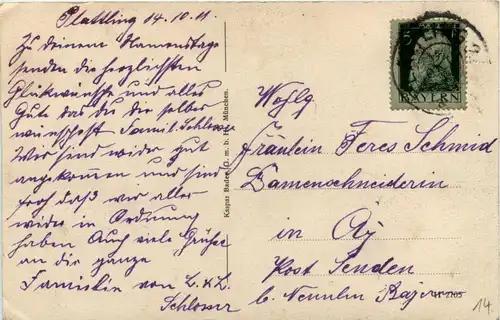 Plattling 14.10.11.
Zu deinem Namenstage
senden die herzlichsten
Glükwünsche und alles
Gute das du dir selber
wünschest Famil. Schlosser
Wir sind wider gut
angekommen und sind
froh daß wir alles
wider in Ordnung
haben Auch viele Grüße
an die ganze
Familie von L. & L.
Schlosser
Kaspar Bauer, G. m. b. H., München.
BAYERN
Wohlg
Fräulein Feres Schmid
Damenschneiderin
in Ay
Post Senden
b. Neuulm Bayern
14.